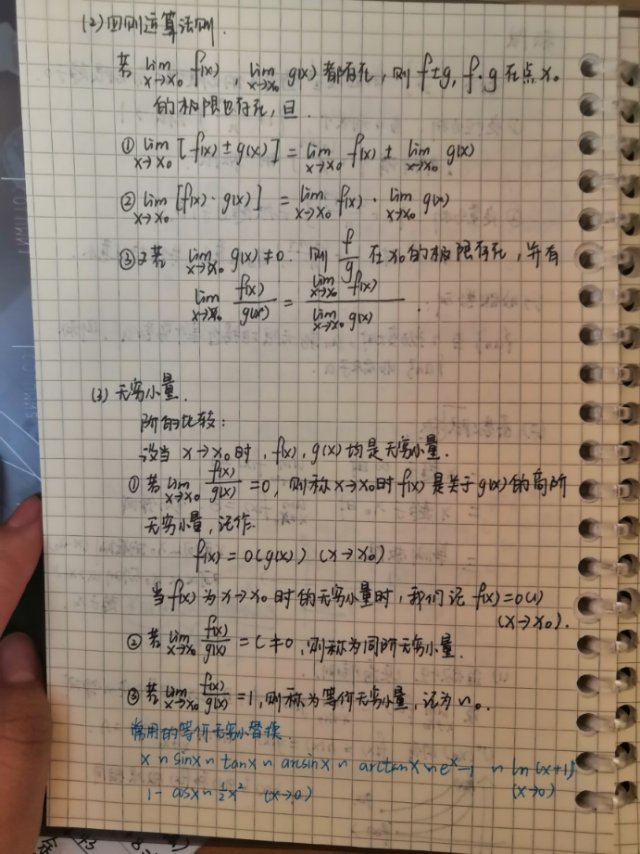 (2) 四则运算法则.
若 lim x→x₀ f(x) , lim x→x₀ g(x) 都存在, 则 f±g, f·g 在点 x₀
的极限也存在, 且
① lim x→x₀ [f(x) ± g(x)] = lim x→x₀ f(x) ± lim x→x₀ g(x)
② lim x→x₀ [f(x)·g(x)] = lim x→x₀ f(x) · lim x→x₀ g(x)
③ 又若 lim x→x₀ g(x) ≠ 0. 则 f/g 在 x₀ 的极限存在, 并有
lim x→x₀ f(x)/g(x) = lim x→x₀ f(x) / lim x→x₀ g(x) .
(3) 无穷小量.
阶的比较:
设当 x→x₀ 时, f(x), g(x) 均是无穷小量.
① 若 lim x→x₀ f(x)/g(x) = 0, 则称 x→x₀ 时 f(x) 是关于 g(x) 的高阶
无穷小量, 记作.
f(x) = o(g(x)) (x→x₀)
当 f(x) 为 x→x₀ 时的无穷小量时, 我们记 f(x)=o(1)
(x→x₀).
② 若 lim x→x₀ f(x)/g(x) = C ≠ 0, 则称为同阶无穷小量.
③ 若 lim x→x₀ f(x)/g(x) = 1, 则称为等价无穷小量, 记为 ~。
常用的等价无穷小替换.
x ~ sinx ~ tanx ~ arcsinx ~ arctanx ~ eˣ-1 ~ ln(x+1)
(x→0)
1-cosx ~ ½x² (x→0)